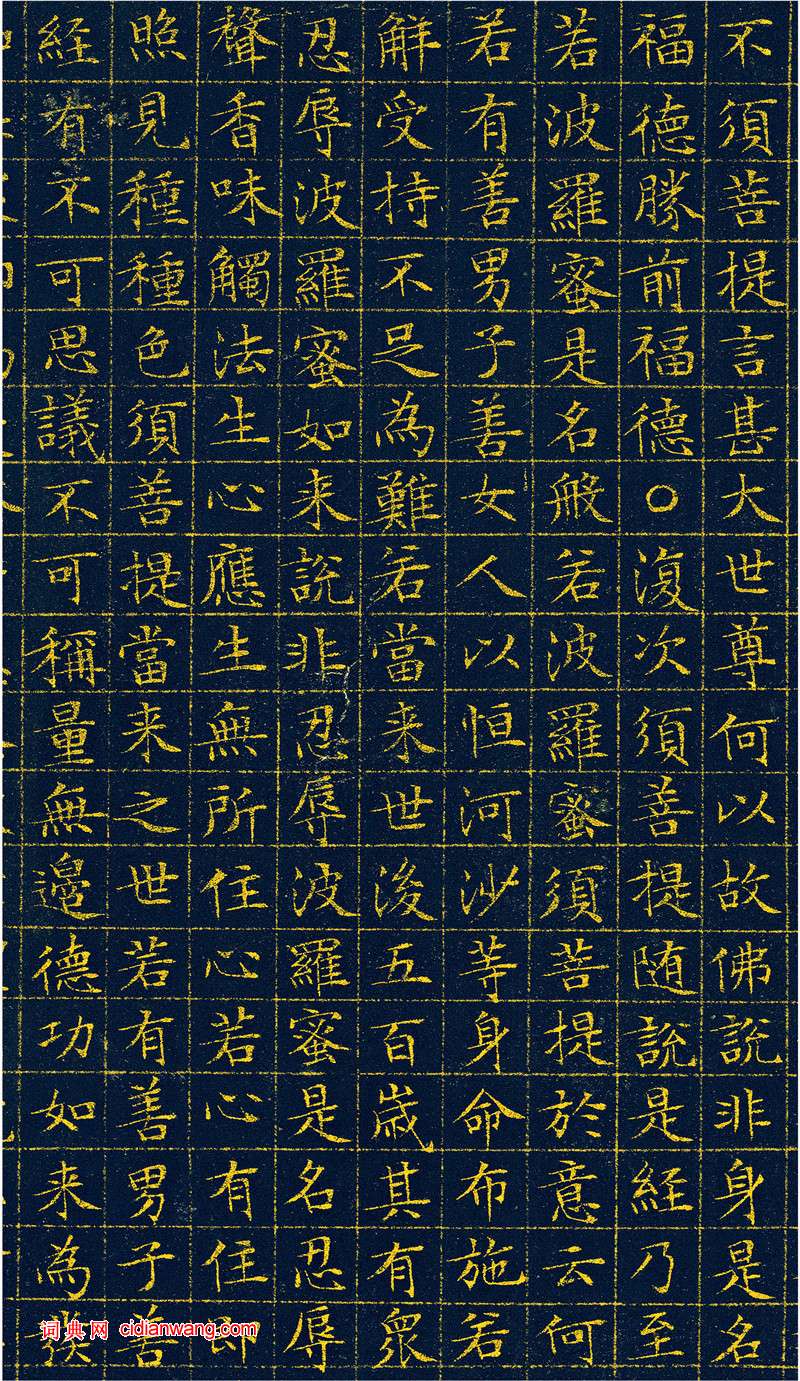 不須菩提言甚大世尊何以故佛說非身是名
福德勝前福德○復次須善提随說是經乃至
若波羅蜜是名般若波羅蜜須菩提於意云何
若有善男子善女人以恒河沙等身命布施若
解受持不足為難若當来世後五百歲其有眾
忍辱波羅蜜如来說非忍辱波羅蜜是名忍辱
聲香味觸法生心應生無所住心若心有住即
照見種種色須善提當来之世若有善男子善
經有不可思議不可稱量無邊德功如来為發
词典网 cidianwang.com